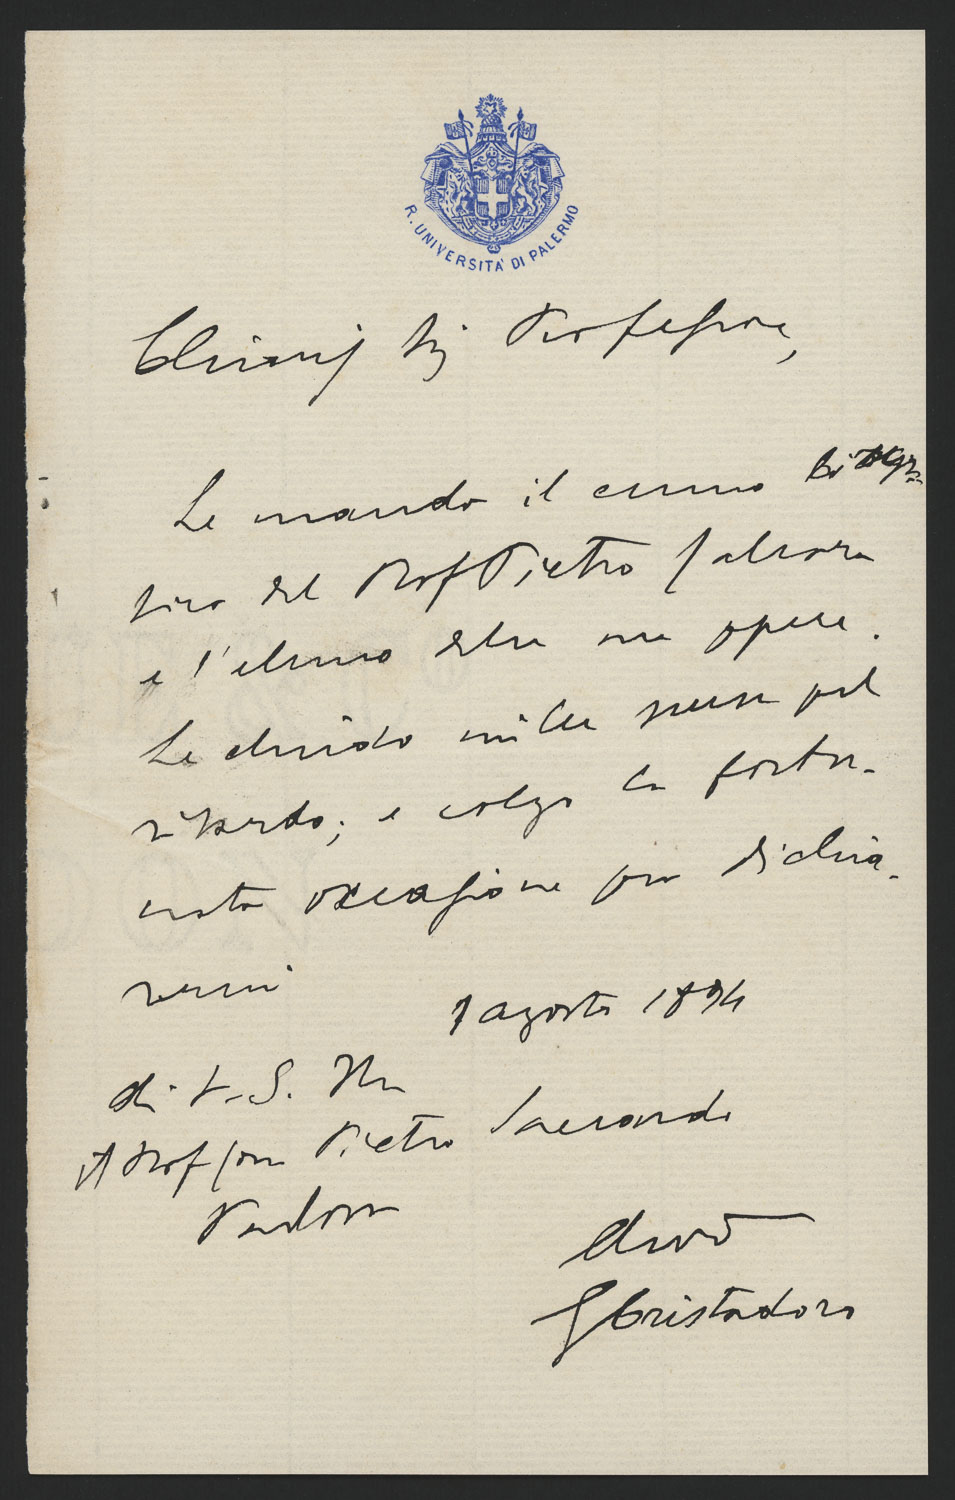 R. UNIVERSITÀ DI PALERMO
Chiariss Sig Professore,
Le mando il cenno biogra
fico del Prof Pietro
e l'elenco delle sue opere.
Le chiedo mille scuse pel
ritardo; e colgo la fortu-
nata occasione per dichia-
rarmi
1 agosto 1894
di V. S. Ill
Al Prof Pietro Saccardo
Padova
devo
G Cristadoro